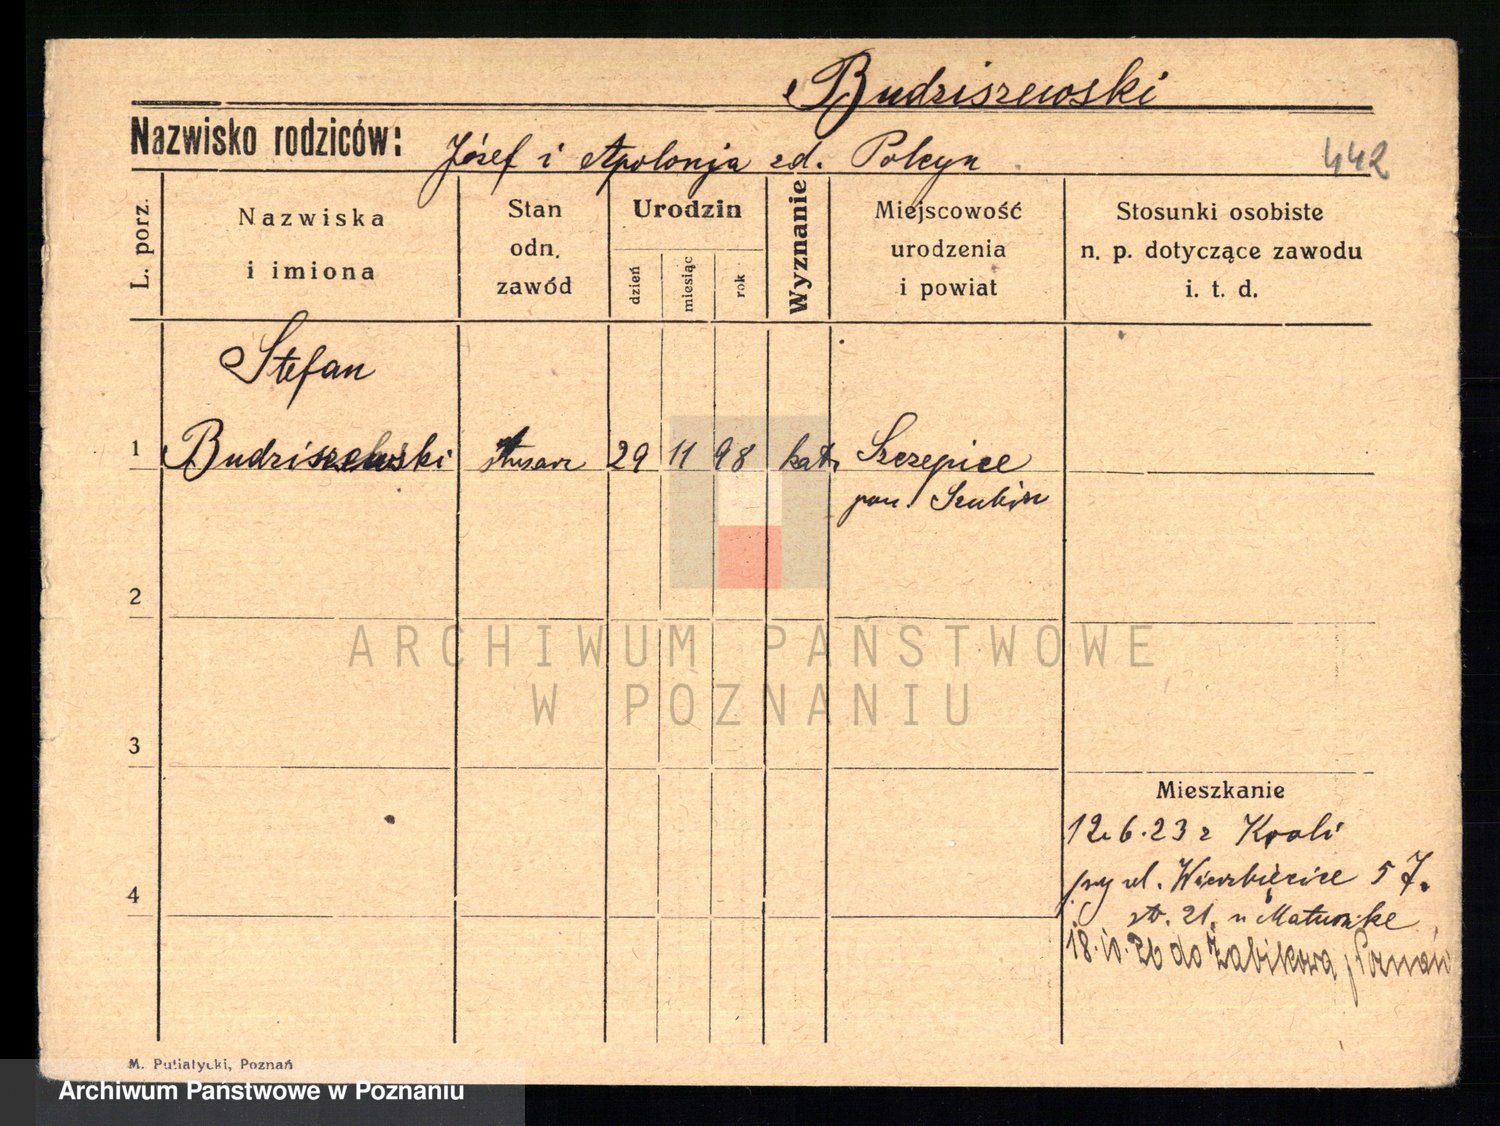 Budziszewski
Nazwisko rodziców: Józef i Apolonja zd. Polcyn
442
L. porz.
Nazwiska
i imiona
Stan
odn.
zawód
Urodzin
dzień
miesiąc
rok
Wyznanie
Miejscowość
urodzenia
i powiat
Stosunki osobiste
n. p. dotyczące zawodu
i. t. d.
Stefan
1 Budziszewski ślusarz 29 11 98 kat. Szczepice
pow. Szubin
2
3
4
Mieszkanie
12.6.23 z Kcoli
przy ul. Wierzbięcice 57.
st. 21. u Matuszke
18.IV.26 do Żabikowa / Poznań
M. Putiatycki, Poznań
ARCHIWUM PAŃSTWOWE
W POZNANIU
Archiwum Państwowe w Poznaniu